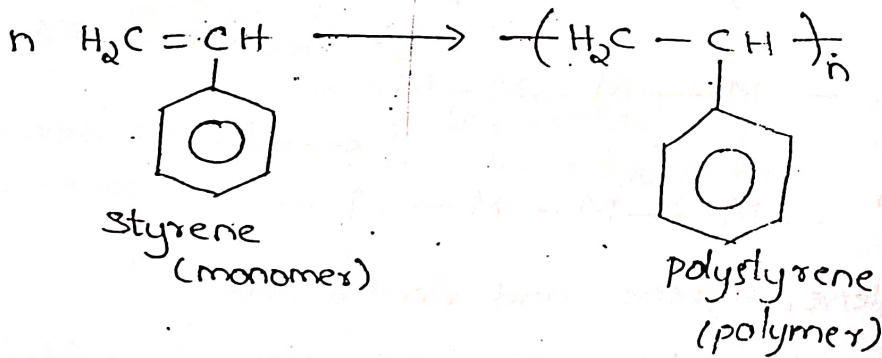 n H₂C = CH ⟶ -( H₂C - CH )-ₙ
Styrene
(monomer)
polystyrene
(polymer)